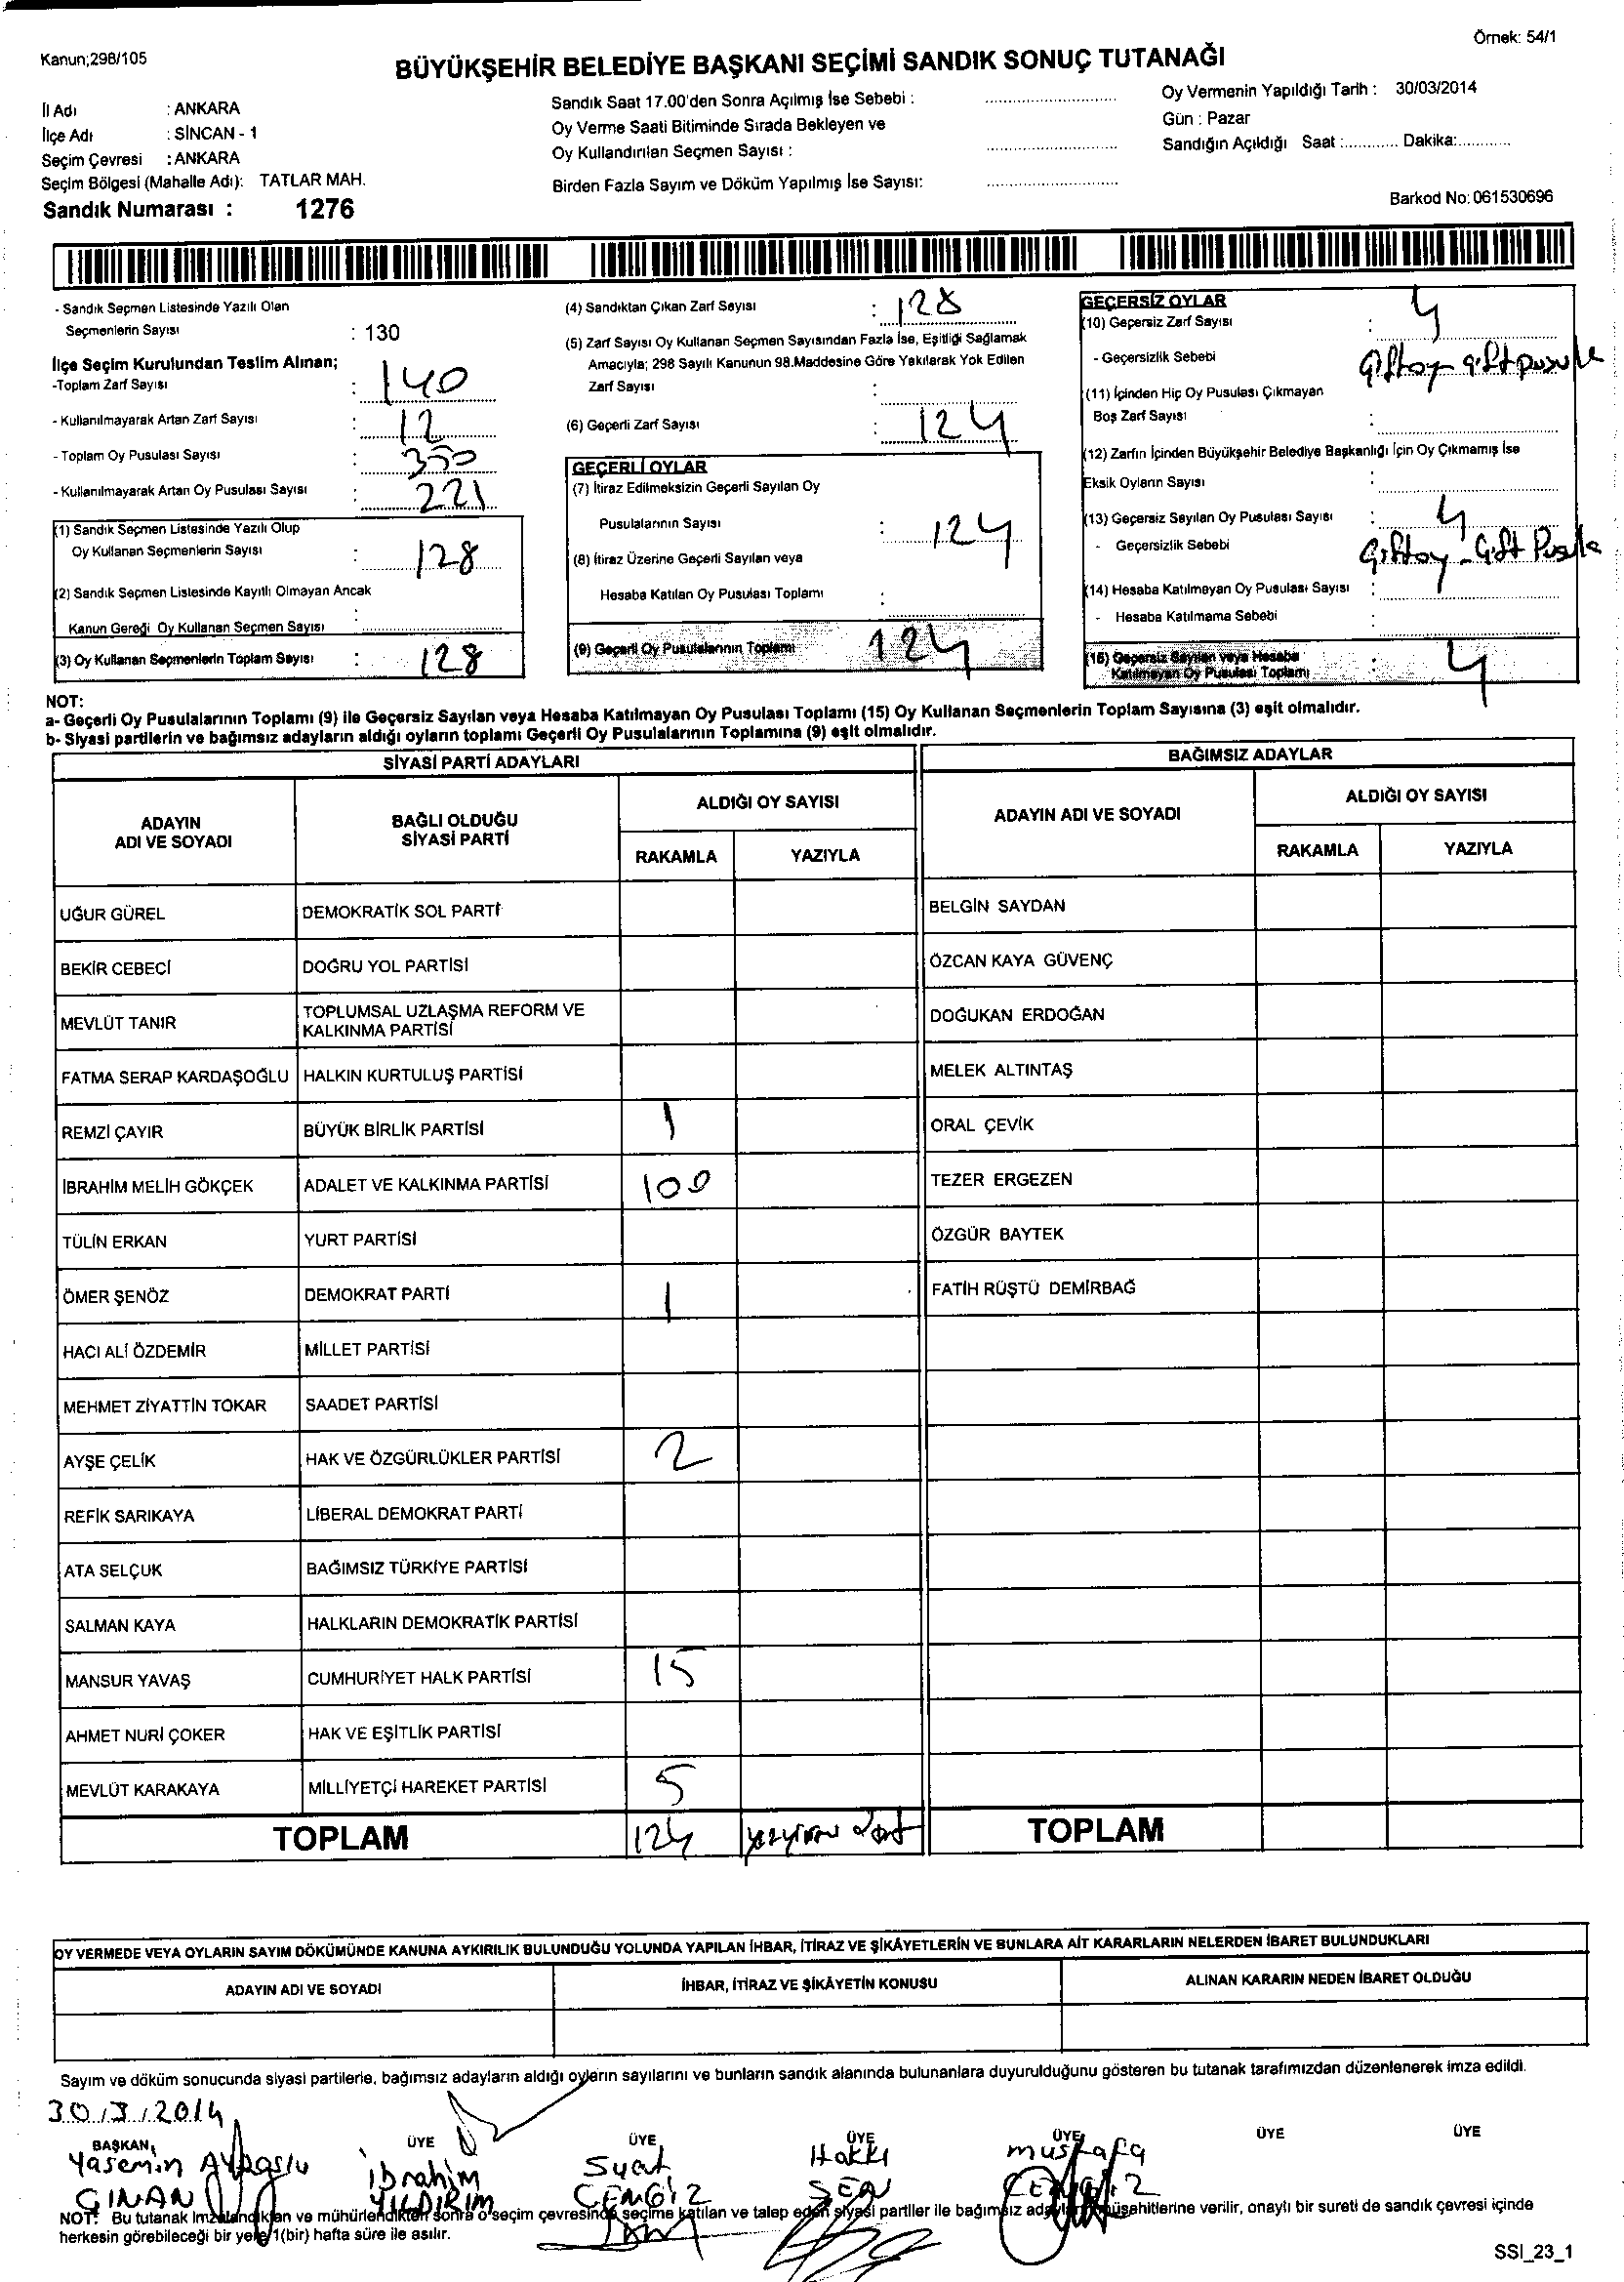 Örnek: 54/1
Kanun;298/105
BÜYÜKŞEHİR BELEDİYE BAŞKANI SEÇİMİ SANDIK SONUÇ TUTANAĞI
İl Adı : ANKARA
İlçe Adı : SİNCAN - 1
Seçim Çevresi : ANKARA
Seçim Bölgesi (Mahalle Adı): TATLAR MAH.
Sandık Numarası : 1276
Sandık Saat 17.00'den Sonra Açılmış İse Sebebi :
Oy Verme Saati Bitiminde Sırada Bekleyen ve
Oy Kullandırılan Seçmen Sayısı :
Birden Fazla Sayım ve Döküm Yapılmış İse Sayısı:
Oy Vermenin Yapıldığı Tarih : 30/03/2014
Gün : Pazar
Sandığın Açıldığı Saat :............ Dakika:...........
Barkod No: 061530696
- Sandık Seçmen Listesinde Yazılı Olan
Seçmenlerin Sayısı : 130
İlçe Seçim Kurulundan Teslim Alınan;
-Toplam Zarf Sayısı : 140
- Kullanılmayarak Artan Zarf Sayısı : 12
- Toplam Oy Pusulası Sayısı : 350
- Kullanılmayarak Artan Oy Pusulası Sayısı : 221
(1) Sandık Seçmen Listesinde Yazılı Olup
Oy Kullanan Seçmenlerin Sayısı : 128
(2) Sandık Seçmen Listesinde Kayıtlı Olmayan Ancak
Kanun Gereği Oy Kullanan Seçmen Sayısı :
(3) Oy Kullanan Seçmenlerin Toplam Sayısı : 128
(4) Sandıktan Çıkan Zarf Sayısı : 128
(5) Zarf Sayısı Oy Kullanan Seçmen Sayısından Fazla İse, Eşitliği Sağlamak
Amacıyla; 298 Sayılı Kanunun 98.Maddesine Göre Yakılarak Yok Edilen
Zarf Sayısı :
(6) Geçerli Zarf Sayısı : 124
GEÇERLİ OYLAR
(7) İtiraz Edilmeksizin Geçerli Sayılan Oy
Pusulalarının Sayısı : 124
(8) İtiraz Üzerine Geçerli Sayılan veya
Hesaba Katılan Oy Pusulası Toplamı :
(9) Geçerli Oy Pusulalarının Toplamı 124
GEÇERSİZ OYLAR
(10) Geçersiz Zarf Sayısı : 4
- Geçersizlik Sebebi Çiftoy çift pusula
(11) İçinden Hiç Oy Pusulası Çıkmayan
Boş Zarf Sayısı :
(12) Zarfın İçinden Büyükşehir Belediye Başkanlığı İçin Oy Çıkmamış İse
Eksik Oyların Sayısı :
(13) Geçersiz Sayılan Oy Pusulası Sayısı : 4
- Geçersizlik Sebebi Çiftoy - Çift Pusula
(14) Hesaba Katılmayan Oy Pusulası Sayısı :
- Hesaba Katılmama Sebebi :
(15) Geçersiz Sayılan veya Hesaba
Katılmayan Oy Pusulası Toplamı : 4
NOT:
a- Geçerli Oy Pusulalarının Toplamı (9) ile Geçersiz Sayılan veya Hesaba Katılmayan Oy Pusulası Toplamı (15) Oy Kullanan Seçmenlerin Toplam Sayısına (3) eşit olmalıdır.
b- Siyasi partilerin ve bağımsız adayların aldığı oyların toplamı Geçerli Oy Pusulalarının Toplamına (9) eşit olmalıdır.
SİYASİ PARTİ ADAYLARI
ADAYIN ADI VE SOYADI
BAĞLI OLDUĞU SİYASİ PARTİ
ALDIĞI OY SAYISI
RAKAMLA YAZIYLA
UĞUR GÜREL DEMOKRATİK SOL PARTİ
BEKİR CEBECİ DOĞRU YOL PARTİSİ
MEVLÜT TANIR TOPLUMSAL UZLAŞMA REFORM VE KALKINMA PARTİSİ
FATMA SERAP KARDAŞOĞLU HALKIN KURTULUŞ PARTİSİ
REMZİ ÇAYIR BÜYÜK BİRLİK PARTİSİ 1
İBRAHİM MELİH GÖKÇEK ADALET VE KALKINMA PARTİSİ 100
TÜLİN ERKAN YURT PARTİSİ
ÖMER ŞENÖZ DEMOKRAT PARTİ 1
HACI ALİ ÖZDEMİR MİLLET PARTİSİ
MEHMET ZİYATTİN TOKAR SAADET PARTİSİ
AYŞE ÇELİK HAK VE ÖZGÜRLÜKLER PARTİSİ 2
REFİK SARIKAYA LİBERAL DEMOKRAT PARTİ
ATA SELÇUK BAĞIMSIZ TÜRKİYE PARTİSİ
SALMAN KAYA HALKLARIN DEMOKRATİK PARTİSİ
MANSUR YAVAŞ CUMHURİYET HALK PARTİSİ 15
AHMET NURİ ÇOKER HAK VE EŞİTLİK PARTİSİ
MEVLÜT KARAKAYA MİLLİYETÇİ HAREKET PARTİSİ 5
TOPLAM 124
BAĞIMSIZ ADAYLAR
ADAYIN ADI VE SOYADI
ALDIĞI OY SAYISI
RAKAMLA YAZIYLA
BELGİN SAYDAN
ÖZCAN KAYA GÜVENÇ
DOĞUKAN ERDOĞAN
MELEK ALTINTAŞ
ORAL ÇEVİK
TEZER ERGEZEN
ÖZGÜR BAYTEK
FATİH RÜŞTÜ DEMİRBAĞ
TOPLAM
OY VERMEDE VEYA OYLARIN SAYIM DÖKÜMÜNDE KANUNA AYKIRILIK BULUNDUĞU YOLUNDA YAPILAN İHBAR, İTİRAZ VE ŞİKÂYETLERİN VE BUNLARA AİT KARARLARIN NELERDEN İBARET BULUNDUKLARI
ADAYIN ADI VE SOYADI İHBAR, İTİRAZ VE ŞİKÂYETİN KONUSU ALINAN KARARIN NEDEN İBARET OLDUĞU
Sayım ve döküm sonucunda siyasi partilerle, bağımsız adayların aldığı oyların sayılarını ve bunların sandık alanında bulunanlara duyurulduğunu gösteren bu tutanak tarafımızdan düzenlenerek imza edildi.
30/3/2014
BAŞKAN ÜYE ÜYE ÜYE ÜYE ÜYE ÜYE
Yasemin ibrahim Suat Hakkı mustafa
ÇINAN YILDIRIM CENGİZ ŞEN CENGİZ
NOT: Bu tutanak İmzalandıktan ve mühürlendikten sonra o seçim çevresinde seçime katılan ve talep eden siyasi partiler ile bağımsız adayların müşahitlerine verilir, onaylı bir sureti de sandık çevresi içinde
herkesin görebileceği bir yere 1(bir) hafta süre ile asılır.
SSI_23_1